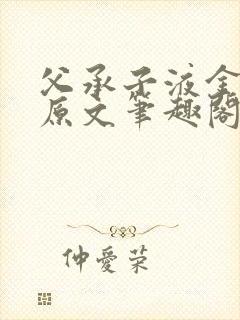 父承子液全
原文笔趣阁
仲爱荣